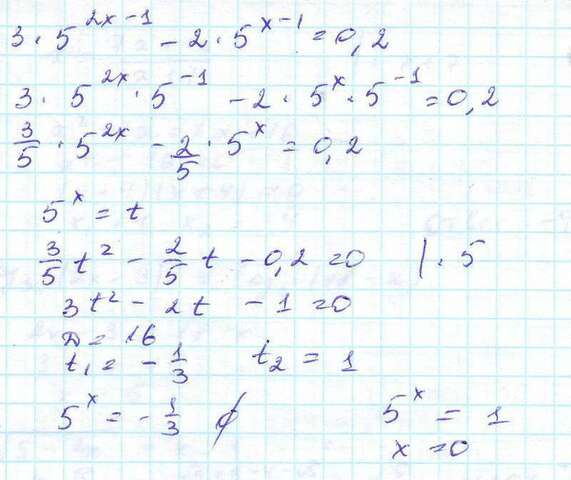 3 · 5^(2x-1) - 2 · 5^(x-1) = 0,2
3 · 5^(2x) · 5^(-1) - 2 · 5^x · 5^(-1) = 0,2
3/5 · 5^(2x) - 2/5 · 5^x = 0,2
5^x = t
3/5 t² - 2/5 t - 0,2 = 0 | · 5
3t² - 2t - 1 = 0
D = 16
t₁ = - 1/3 t₂ = 1
5^x = - 1/3 ∅ 5^x = 1
x = 0